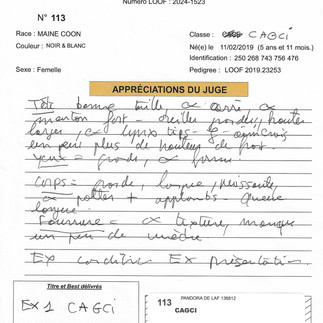 Numéro LOOF : 2024-1523
N° 113
Race : MAINE COON
Classe : CAGCI
Couleur : NOIR & BLANC
Né(e) le 11/02/2019 (5 ans et 11 mois.)
Identification : 250 268 743 756 476
Sexe : Femelle
Pedigree : LOOF 2019.23253
APPRÉCIATIONS DU JUGE
Tête bonne taille, α carré, α
menton fort - oreilles hautes
larges, α lynx tips
un peu plus de hauteur de
Yeux = grands, α forme
Corps = grande, longue, puissante,
α pattes + aplombs. Queue
longue
Fourrure = α texture, manque
un peu de
Ex condition Ex présentation
Titre et Best délivrés
EX 1 CAGCI
113
PANDORA DE LAF 136812
CAGCI